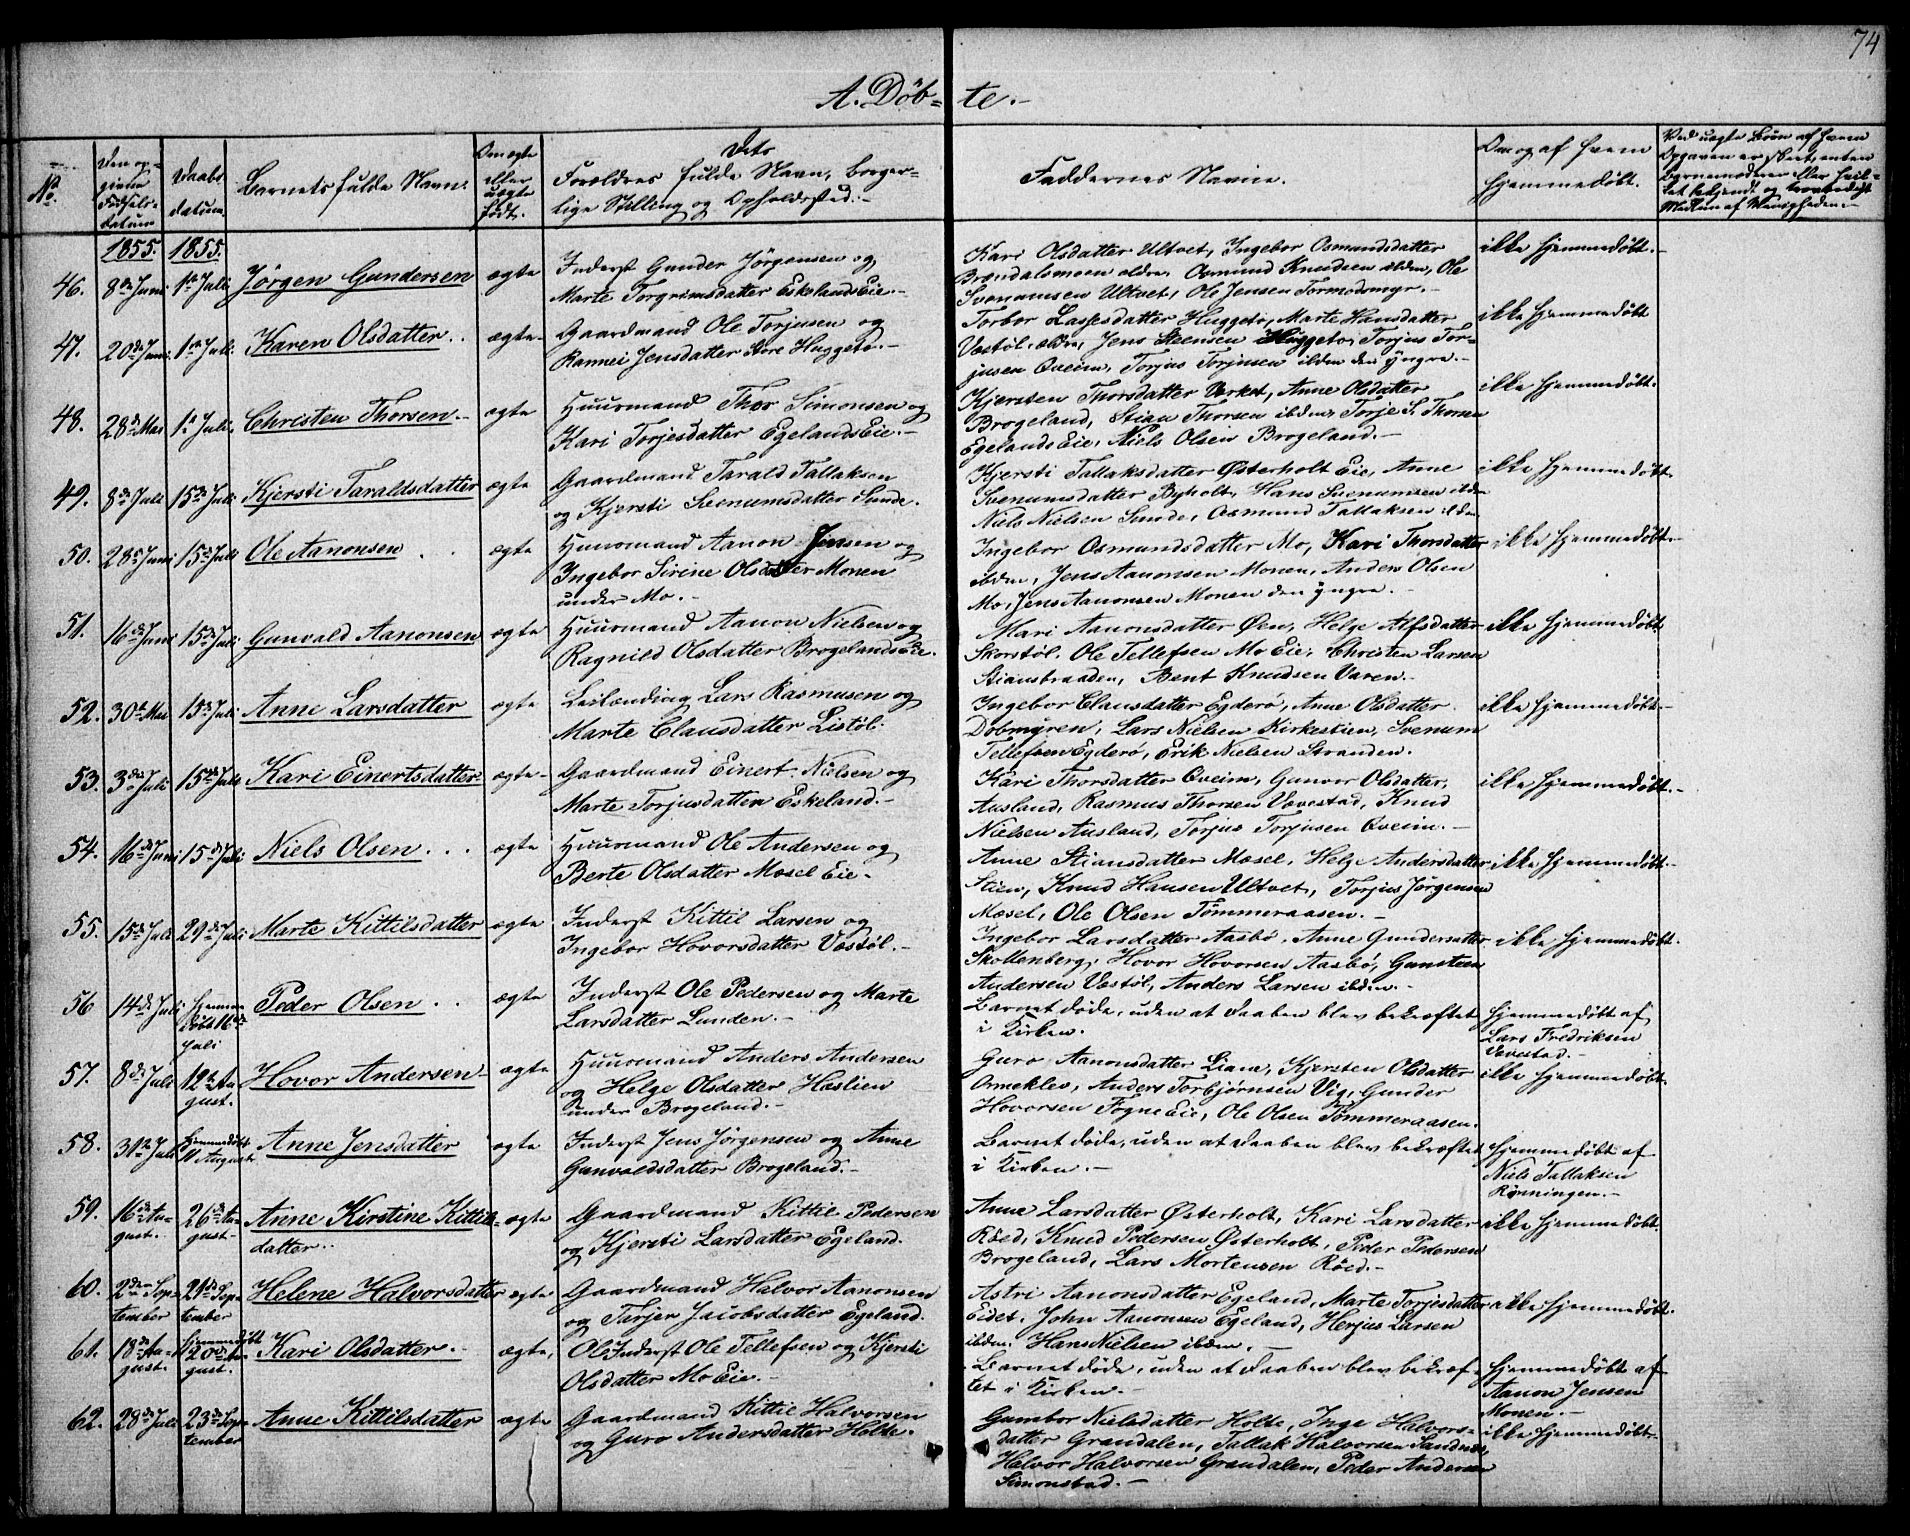 74
A. Døb- te.-
No. | Den opgivne Fødselsdatum | Daabsdatum | Barnets fulde Navn. | Om ægte eller uægte født. | Dets Forældres fulde Navn, borgerlige Stilling og Opholdssted.- | Faddernes Navne. | Om og af hvem hjemmedøbt.
1855. 1855.
46. 8de Juni 1ste Juli Jørgen Gundersen ægte
Inderst Gunder Jørgensen og
Marte Torgrimsdatter Eskelands Eie.-
Kari Olsdatter Ultvet, Ingebor Osmundsdatter
Brændalsmoen ældre, Osmund Knudsen ibden, Ole
Svenumsen Ultvet, Ole Jensen Tormodsmyr.-
ikke hjemmedøbt.-
47. 20de Juni 1ste Juli Karen Olsdatter.. ægte-
Gaardmand Ole Torjusen og
Rannei Jensdatter Store Huggeto.-
Torbor Lassesdatter Huggeto, Marte Hansdatter
Vestøl ældre, Jens Steensen Huggeto, Torjus Tor-
jusen Oveim, Torjus Torjusen ibden den yngre.-
ikke hjemmedøbt
48. 28de Mai 1ste Juli. Christen Thorsen.- ægte
Huusmand Thor Simonsen og
Kari Torjesdatter Egelands Eie.-
Kjersten Thorsdatter Værket, Anne Olsdatter
Brogeland, Stian Thorsen ibden, Torje S. Thorsen
Egelands Eie, Niels Olsen Brogeland.-
ikke hjemmedøbt.
49. 8de Juli 15de Juli Kjersti Taraldsdatter ægte
Gaardmand Tarald Tallaksen
og Kjersti Svenumsdatter Sunde.
Kjersti Tallaksdatter Østerholt Eie, Anne
Svenumsdatter Byholt, Hans Svenumsen ibden
Niels Nielsen Sunde, Osmund Tallaksen ibden.
ikke hjemmedøbt.
50. 28de Juni 15de Juli Ole Aanonsen . . ægte
Huusmand Aanon Jensen og
Ingebor Sirine Olsdatter Monen
under Mo.-
Ingebor Osmundsdatter Mo, Kari Thorsdatter
ibden, Jens Aanonsen Monen, Anders Olsen
Mo, Jens Aanonsen Monen den yngre.-
ikke hjemmedøbt.-
51. 16de Juni 15de Juli Gunvald Aanonsen ægte
Huusmand Aanon Nielsen og
Ragnild Olsdatter Brogelands Eie.
Mari Aanonsdatter Øen, Helge Alfsdatter
Skorstøl, Ole Tellefsen Mo Eie, Christen Larsen
Stiansbraaden, Bent Knudsen Varen.-
ikke hjemmedøbt
52. 30te Mai 15de Juli Anne Larsdatter ægte
Leilænding Lars Rasmusen og
Marte Clausdatter Listøl.
Ingebor Clausdatter Egderø, Anne Olsdatter
Dobmyren, Lars Nielsen Kirkestien, Svenum
Tellefsen Egderø, Erik Nielsen Stranden.
ikke hjemmedøbt.-
53. 3die Juli 15de Juli Kari Einertsdatter. ægte-
Gaardmand Einert Nielsen og
Marte Torjusdatter Eskeland.-
Kari Thorsdatter Oveim, Gunvor Olsdatter,
Ausland, Rasmus Thorsen Vævestad, Knud
Nielsen Ausland, Torjus Torjusen Oveim.-
ikke hjemmedøbt.-
54. 16de Juni 15de Juli Niels Olsen . . . ægte
Huusmand Ole Andersen og
Berte Olsdatter Mæsel Eie-
Anne Stiansdatter Mæsel, Helge Andersdatter
Stien, Knud Hansen Ultvet, Torjus Jørgensen
Mæsel, Ole Olsen Tømmeraasen.-
ikke hjemmedøbt.-
55. 15de Juli 29de Juli Marte Kittilsdatter ægte
Inderst Kittil Larsen og
Ingebor Hovorsdatter Vestøl.-
Ingebor Larsdatter Aasbø, Anne Gundersatter
Skollenberg, Hovor Hovorsen Aasbø, Gunsteen
Andersen Vestøl, Anders Larsen ibden.-
ikke hjemmedøbt.
56 14de Juli hjemmedøbt 16de Juli Peder Olsen . . ægte
Inderst Ole Pedersen og Marte
Larsdatter Lunden.-
Barnet døde, uden at Daaben blev bekræftet
i Kirken.
hjemmedøbt af
Lars Fredriksen
Vævestad.-
57. 8de Juli 12te August. Hovor Andersen- ægte
Huusmand Anders Andersen
og Helge Olsdatter Heslien
under Brogeland.-
Guro Aanonsdatter Liane, Kjersten Olsdatter
Ormeklev, Anders Torbjørnsen Vig, Gunder
Hovorsen Fogne Eie, Ole Olsen Tømmeraasen.
ikke hjemmedøbt.
58. 31te Juli Hjemmedøbt 11 August Anne Jensdatter ægte
Inderst Jens Jørgensen og Anne
Gunvaldsdatter Brogeland.-
Barnet døde, uden at Daaben blev bekræftet
i Kirken.-
hjemmedøbt af
Niels Tallaksen
Rønningen.-
59. 16de August. 26de August- Anne Kirstine Kittilsdatter.. ægte
Gaardmand Kittil Pedersen
og Kjersti Larsdatter Egeland.
Anne Larsdatter Østerholt, Kari Larsdatter
Røed, Knud Pedersen Østerholt, Peder Pedersen
Brogeland, Lars Mortensen Røed.-
ikke hjemmedøbt
60. 2den September September Helene Halvorsdatter ægte
Gaardmand Halvor Aanonsen
og Tarjer Jacobsdatter Egeland.
Astri Aanonsdatter Egeland, Marte Torjesdatter
Eidet, John Aanonsen Egeland, Herjus Larsen
ibden. Hans Nielsen ibden.
ikke hjemmedøbt.
61. 18de August. Hjemmedøbt 20de August. Kari Olsdatter.- ægte,
Inderst Ole Tellefsen og Kjersti
Olsdatter Mo Eie.-
Barnet døde, uden at Daaben blev bekræf-
tet i Kirken.-
hjemmedøbt af
Aanon Jensen
Monen.-
62. 28de Juli 23de September Anne Kittilsdatter ægte
Gaardmand Kittil Halvorsen
og Guro Andersdatter Holte.
Gumbor Nielsdatter Holte, Inge Halvors-
datter Grændalen, Tallak Halvorsen
Halvor Halvorsen Grændalen, Peder Andersen
Simonstad.-
ikke hjemmedøbt.